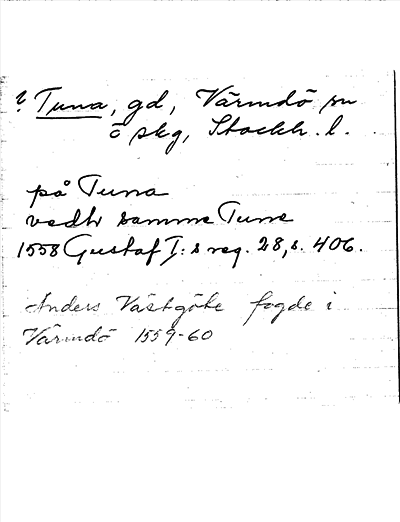 ? Tuna, gd, Värmdö sn
ö skg, Stockh. l.
på Tuna
vedh samme Tune
1558 Gustaf I:s reg. 28, s. 406.
Anders Västgöte fogde i
Värmdö 1559-60